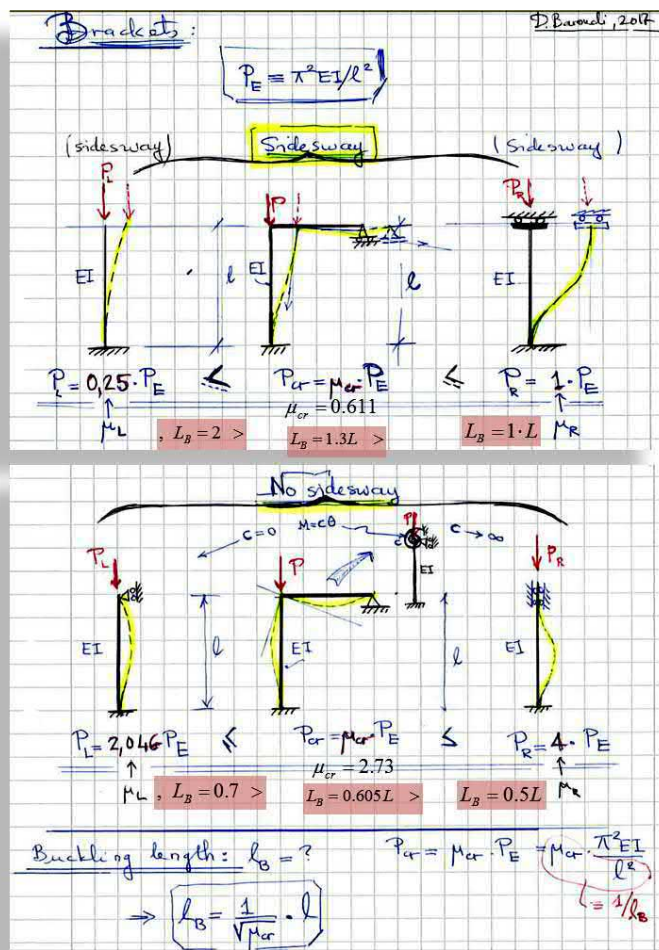 Brackets:
D. Baroudi, 2017
P_E = π²EI/l²
(sidesway)
Sidesway
(Sidesway)
P_L
P
P_R
EI
l
EI
l
EI
P_L = 0,25 · P_E ≤ P_cr = μ_cr · P_E ≤ P_R = 1 · P_E
μ_cr = 0.611
μ_L
μ_R
, L_B = 2 >
L_B = 1.3L >
L_B = 1·L
No sidesway
C=0
M=cθ
P
C → ∞
c
EI
P_L
P
P_R
EI
l
EI
l
EI
P_L = 2,046 P_E ≤ P_cr = μ_cr · P_E ≤ P_R = 4 · P_E
μ_cr = 2.73
μ_L
μ_R
, L_B = 0.7 >
L_B = 0.605L >
L_B = 0.5L
Buckling length: l_B = ?
P_cr = μ_cr · P_E = μ_cr · π²EI/l²
≡ 1/l_B
⇒ l_B = 1/√μ_cr · l